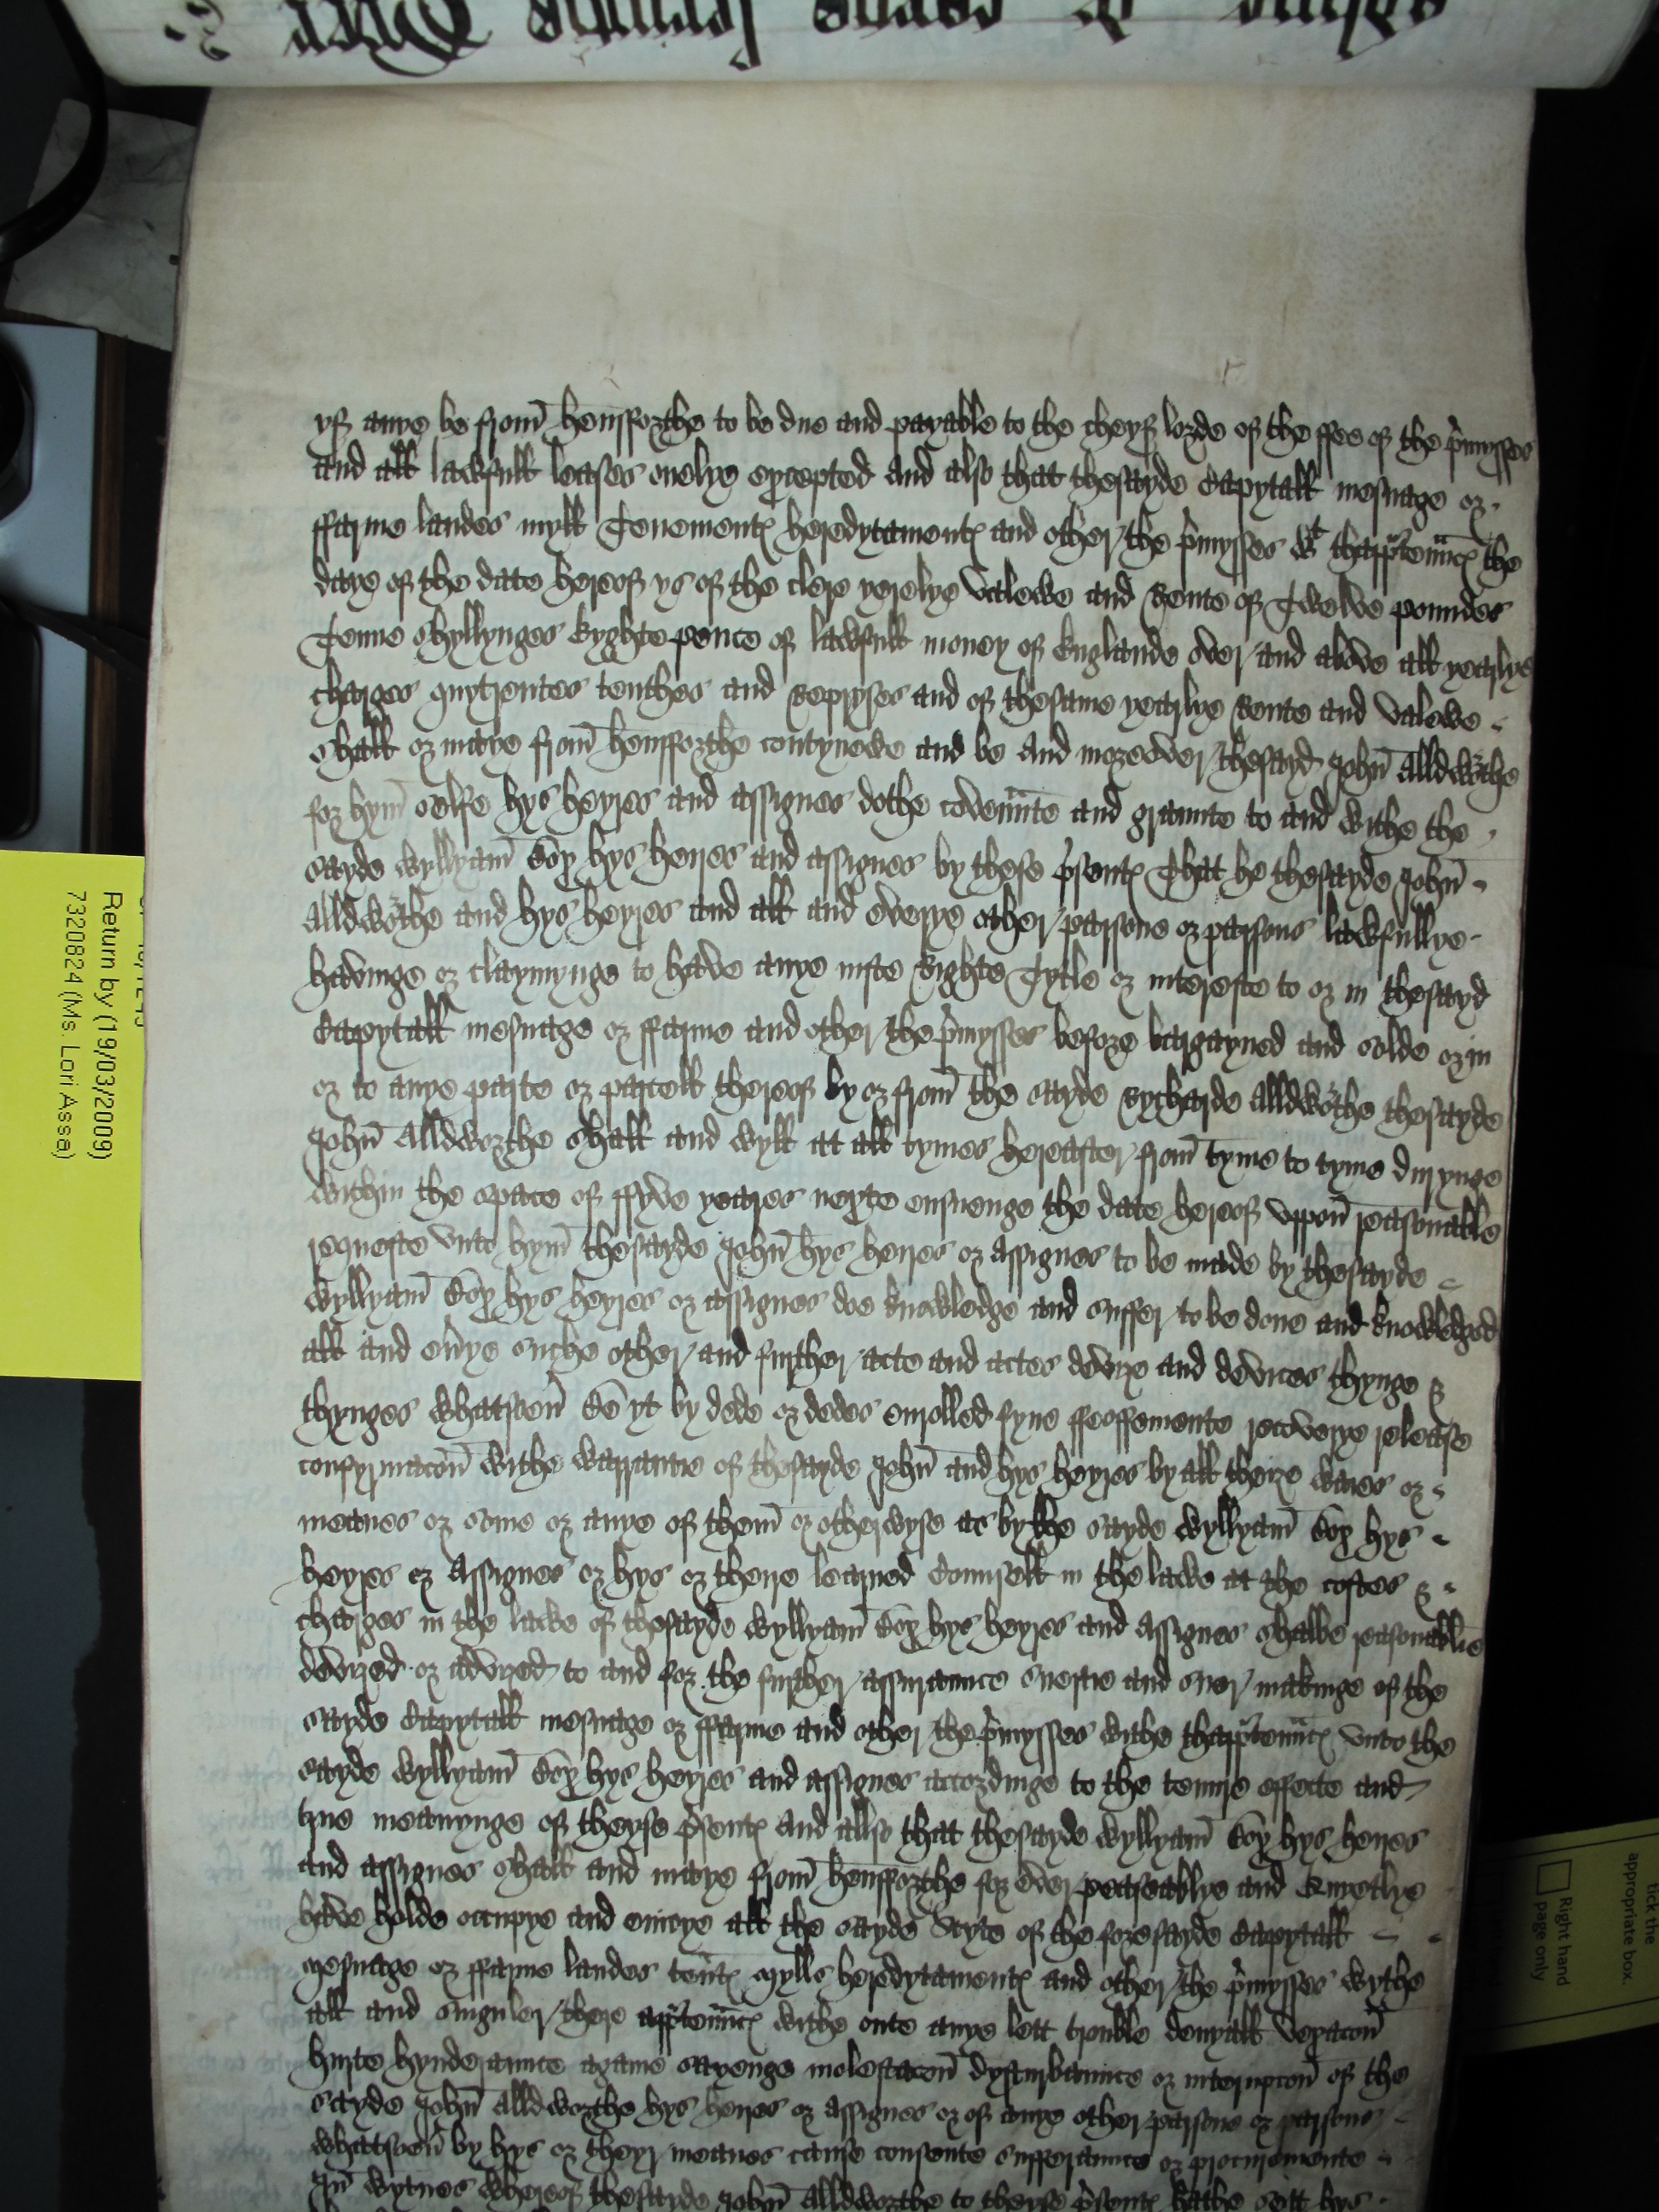 yf anye be from hensforthe to be due and payable to the cheyf lorde of the ffee of the p'mysses
and all lawfull leases onelye excepted And also that thesayde Capytall mesuage or
ffarme landes myll Tenement(es) heredytament(es) and other the p'mysses wt thapp'ten'nc(es) the
daye of the date hereof ys of the clere yerelye Valewe and Rente of Twelve poundes
Tenne shyllynges Eyghte pence of lawfull money of Englande over and above all yearlye
charges quytrentes tenthes and Repryses and of thesame yearlye Rente and Valewe
shall or maye from hensforthe contynewe and be And moreover thesayd John Alldworthe
for hym selfe hys heyres and assignes dothe coven'nte and graunte to and withe the
sayde Wyllyam Cox hys heires and assignes by these p'sent(es) That he thesayde John
Alldworthe and hys heyres and all and everye other parsone or parsons lawfullye
havinge or claymynge to have anye iuste Righte Tytle or intereste to or in thesayd
Capytall mesuage or ffarme and other the p'mysses before bargayned and solde or in
or to anye parte or parcell thereof by or from the sayde Rycharde Alldworthe thesayde
John Alldworthe shall and wyll at all tymes hereafter from tyme to tyme durynge
within the space of ffyve yeares nexte ensuenge the date hereof uppon reasonable
requeste unto hym thesayde John hys heires or assignes to be made by thesayde
Wyllyam Cox hys heyres or assignes doe knowledge and suffer to be done and knowledged
all and ev'ye suche other and further acte and actes devyce and devices thynge &
thynges whatsoev' be yt by dede or dedes enrolled fyne ffeoffemente recoverye release
confyrmacon withe warrantie of thesayde John and hys heyres by all theire waies or
meanes or some or anye of them or otherwyse as by the sayde Wyllyam Cox hys
heyres or Assignes or hys or theire learned Counsell in the lawe at the costes &
charges in the lawe of thesayde Wyllyam Cox hys heyres and Assignes shalbe reasonablie
devized or advized to and for the further assuraunce suertie and suer makinge of the
sayde Capytall mesuage or ffarme and other the p'mysses withe thapp'ten'nc(es) unto the
sayde Wyllyam Cox hys heyres and assignes accordinge to the tenure effecte and
true meanynge of theyse p'sent(es) And allso that thesayde Wyllyam Cox hys heires
and assignes shall and maye from hensforthe for ever peaseablye and Quyetlye
have holde occupye and enioye all the sayde Syte of the foresayde Capytall
mesuage or ffarme landes ten't(es) mylle heredytament(es) and other the p'mysses wythe
all and singuler there app'ten'nc(es) withe oute anye lett trouble denyall Vexacon
hurte hynderaunce agaime sayenge molestacon dysturbaunce or interupcon of the
sayde John Alldworthe hys heires or Assignes or of anye other parsone or parsons
whatsoev' by hys or theyr meanes cause consente sufferaunce or procuremente
In wytnes whereof thesayde John Alldworthe to theyse p'sent(es) hathe sett hys
Return by (19/03/2009)
7320824 (Ms. Lori Assa)
tick the
appropriate box.
Right hand
page only